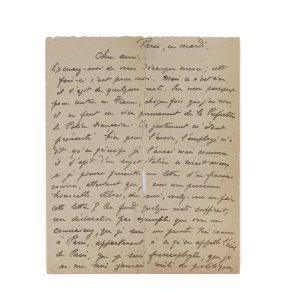 Paris, ce mardi
Cher ami,
Excusez-moi de vous déranger encore; cette
fois-ci c'est pour moi. Mais ce n'est rien,
il s'agit de quelques mots. Sur mon passeport
pour entrer en France, chaque fois que j'en sors
il en faut un visa de la Préfecture
de Police française. Or justement m'étant
présenté hier pour l'avoir, l'employé m'a
dit qu'en principe je l'aurai mais comme
il s'agit d'un sujet italien ce serait mieux
si je pouvais présenter une lettre d'un français
connu, attestant que je suis une personne
honorable. Alors, cher ami, voulez-vous me faire
cette lettre? Au fond quelques mots suffisent,
une déclaration par exemple que vous me
connaissez, que je suis un peintre très connu
à Paris, appartenant à ce qu'on appelle l'école
de Paris, que je suis francophile, que je
ne me suis jamais mêlé de politique,